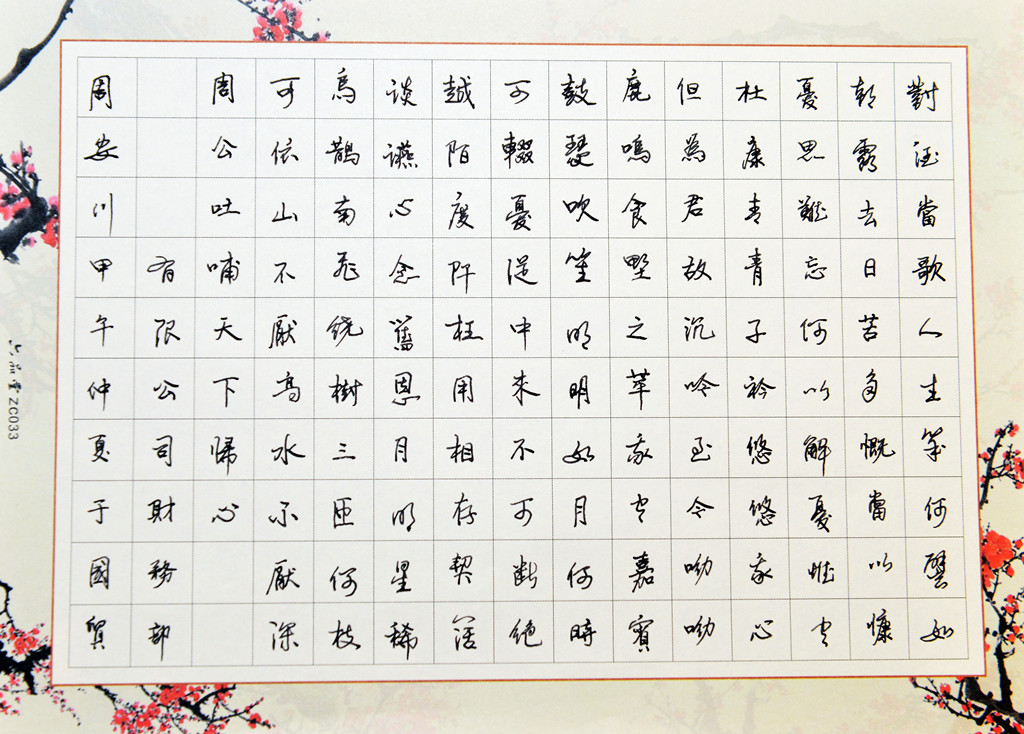 對酒當歌人生幾何譬如
朝露去日苦多慨當以慷
憂思難忘何以解憂惟有
杜康青青子衿悠悠我心
但為君故沉吟至今呦呦
鹿鳴食野之苹我有嘉賓
鼓瑟吹笙明明如月何時
可輟憂從中來不可斷絕
越陌度阡枉用相存契闊
談讌心念舊恩月明星稀
烏鵲南飛繞樹三匝何枝
可依山不厭高水不厭深
周公吐哺天下歸心
有限公司財務部
周安川甲午仲夏于國貿
六品堂 ZC033